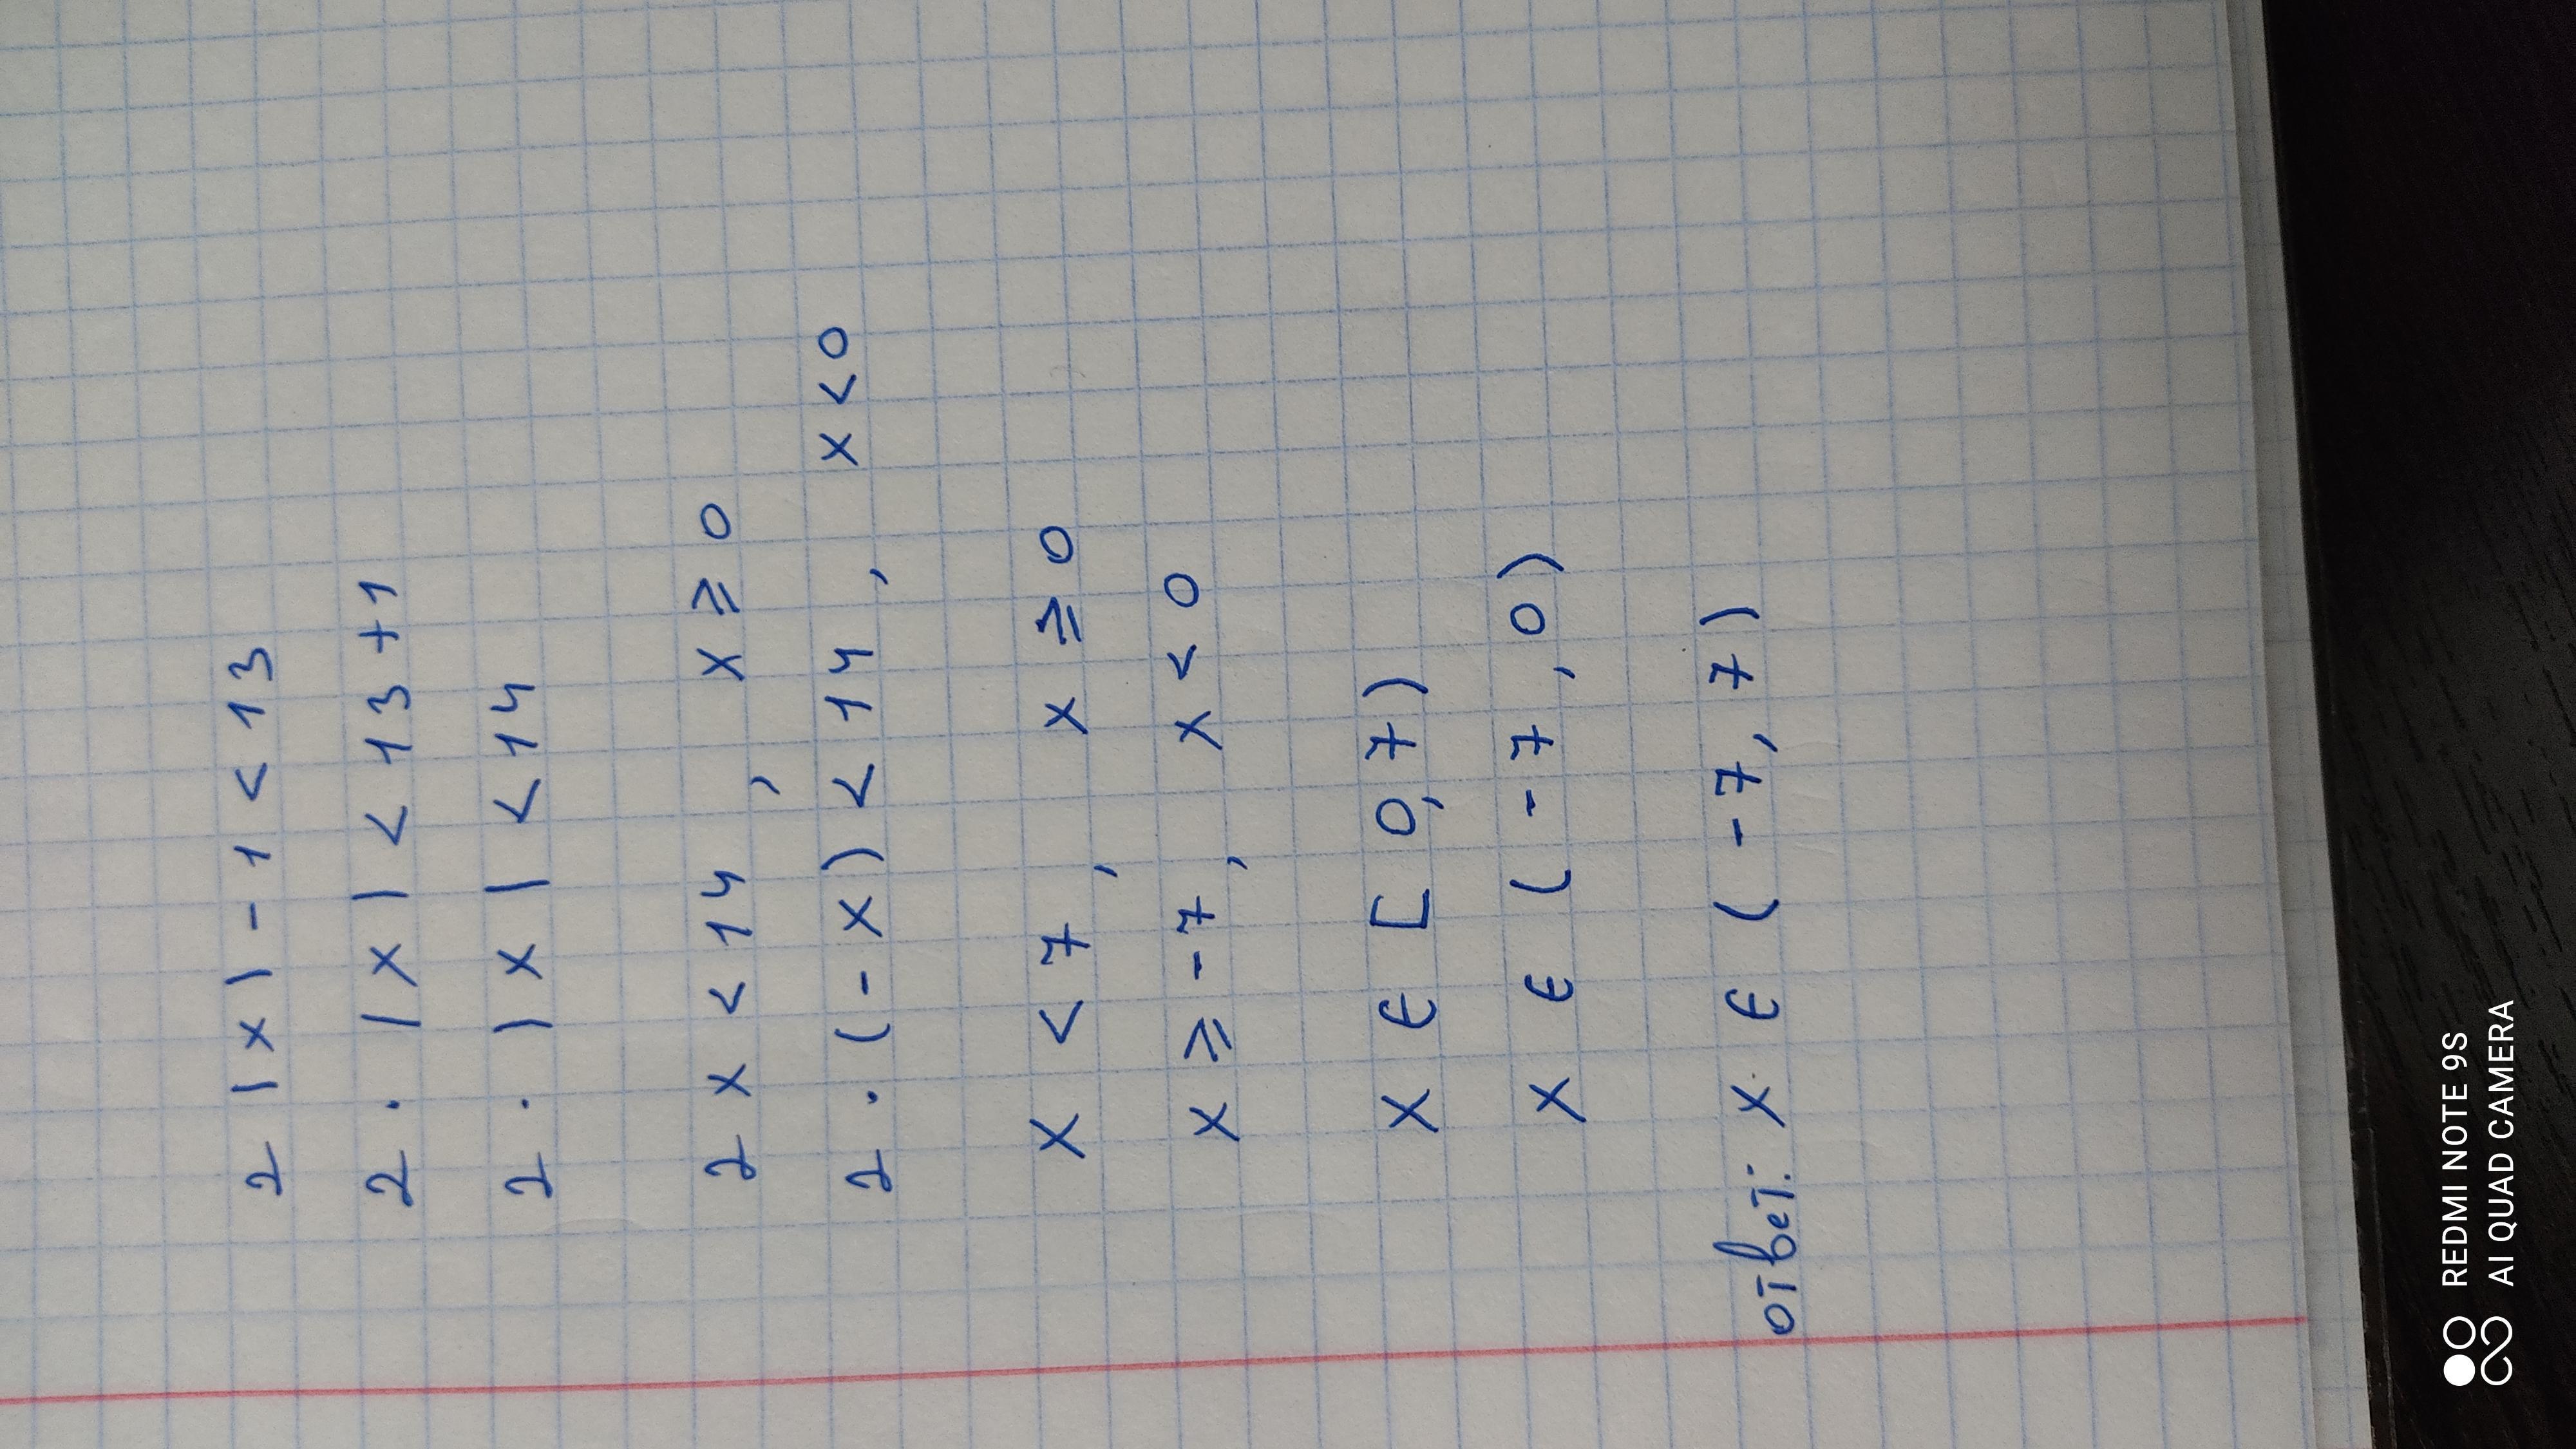 2|x|-1<13
2·|x|<13+1
2·|x|<14
2x<14, x≥0
2·(-x)<14, x<0
x<7, x≥0
x≥-7, x<0
x∈[0,7)
x∈(-7,0)
ответ: x∈(-7,7)
REDMI NOTE 9S
AI QUAD CAMERA